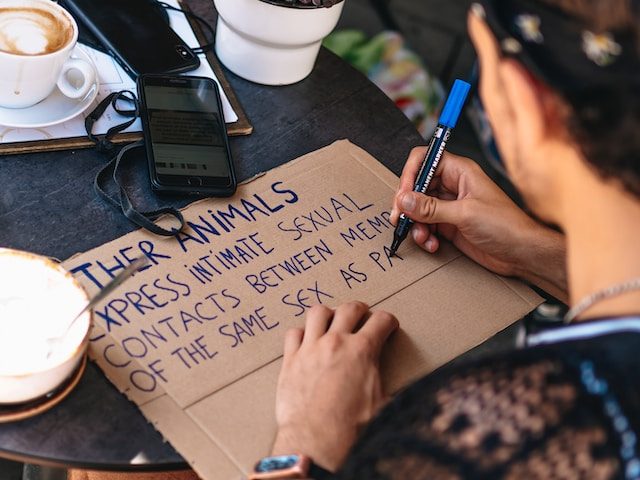 THER ANIMALS
EXPRESS INTIMATE SEXUAL
CONTACTS BETWEEN
OF THE SAME SEX AS PA
MARKER